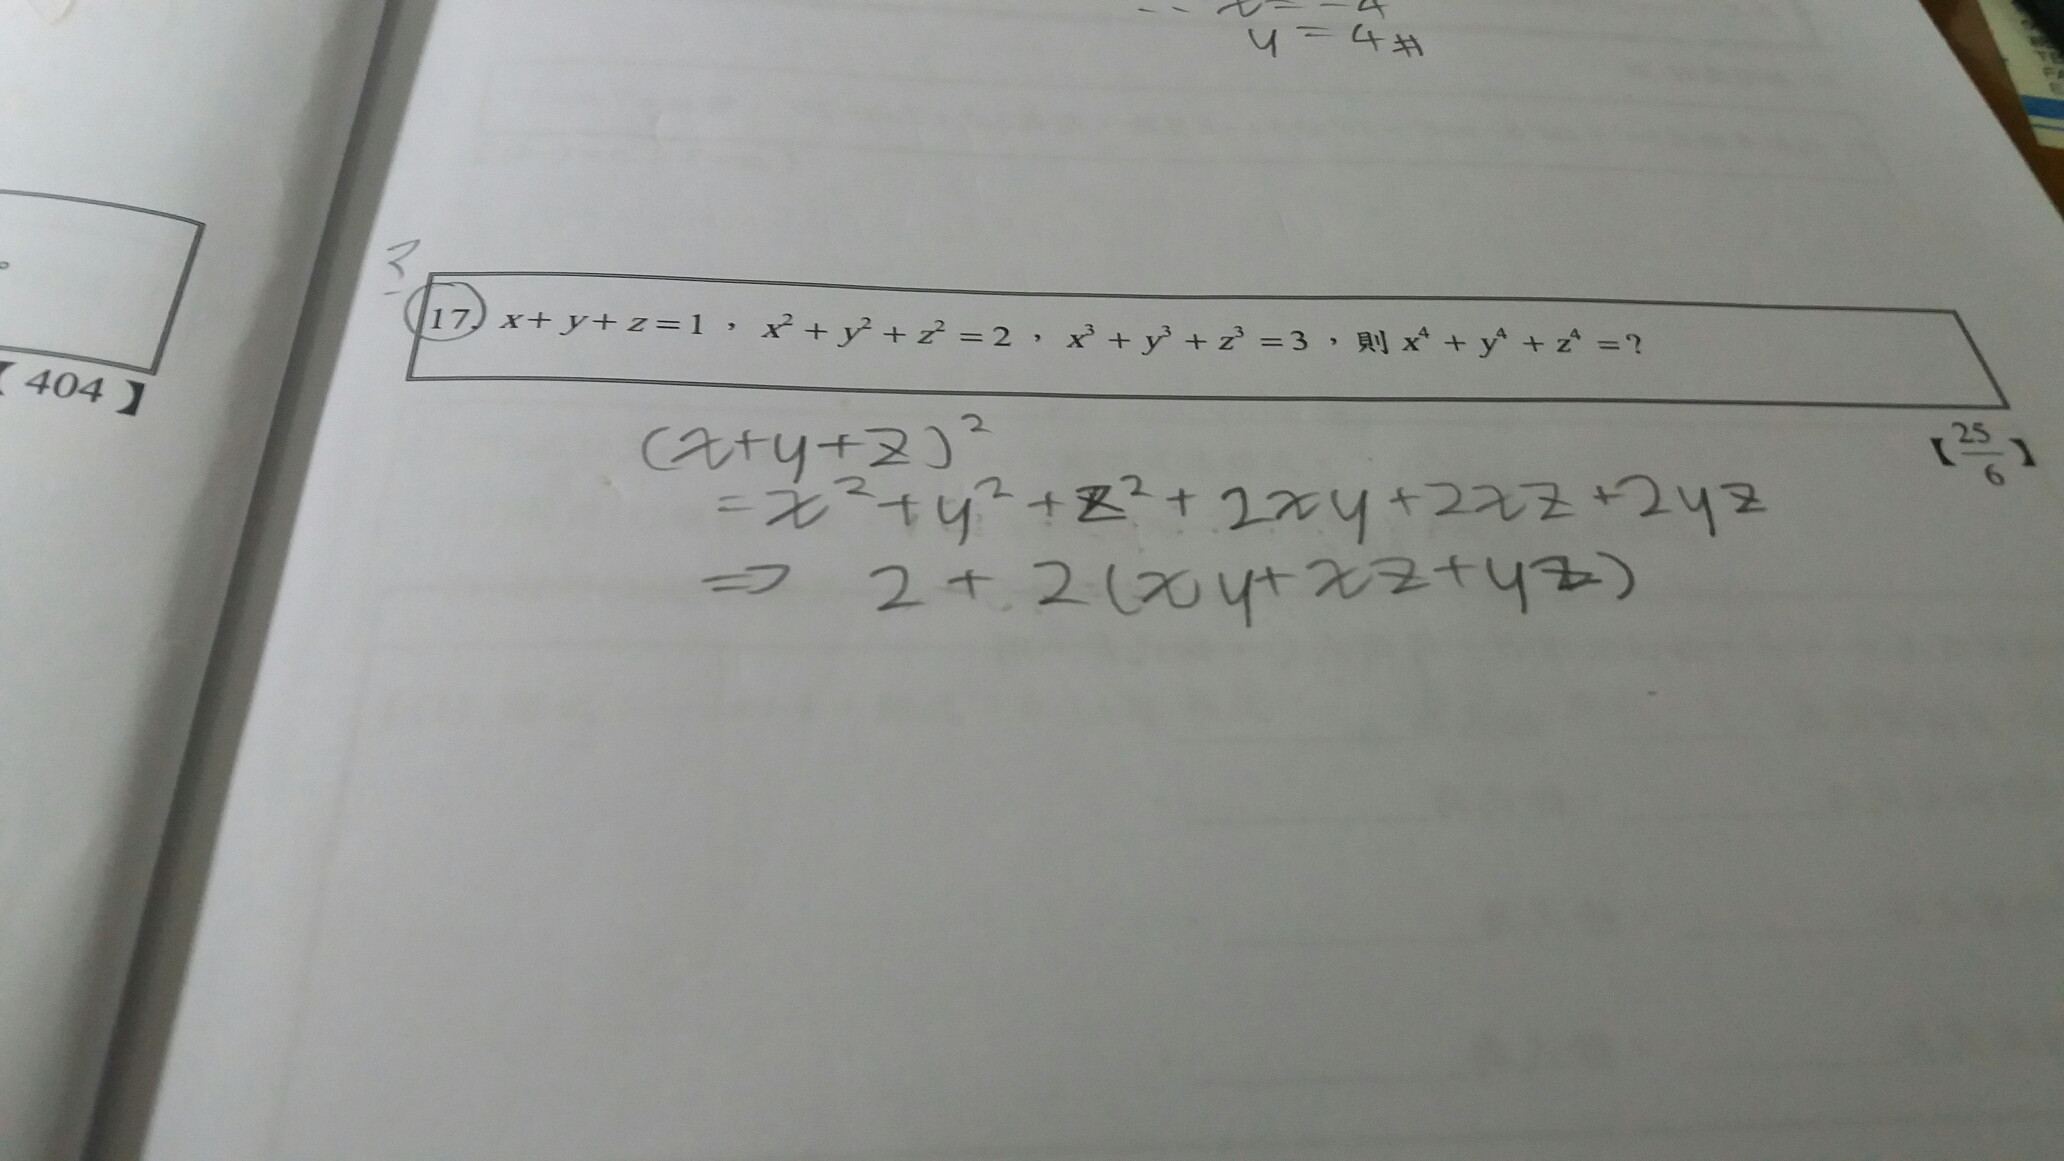 x = -4
y = 4 #
?
17. x + y + z = 1，x² + y² + z² = 2，x³ + y³ + z³ = 3，則 x⁴ + y⁴ + z⁴ = ?
【404】
【25/6】
(x+y+z)²
= x² + y² + z² + 2xy + 2xz + 2yz
⇒ 2 + 2(xy + xz + yz)